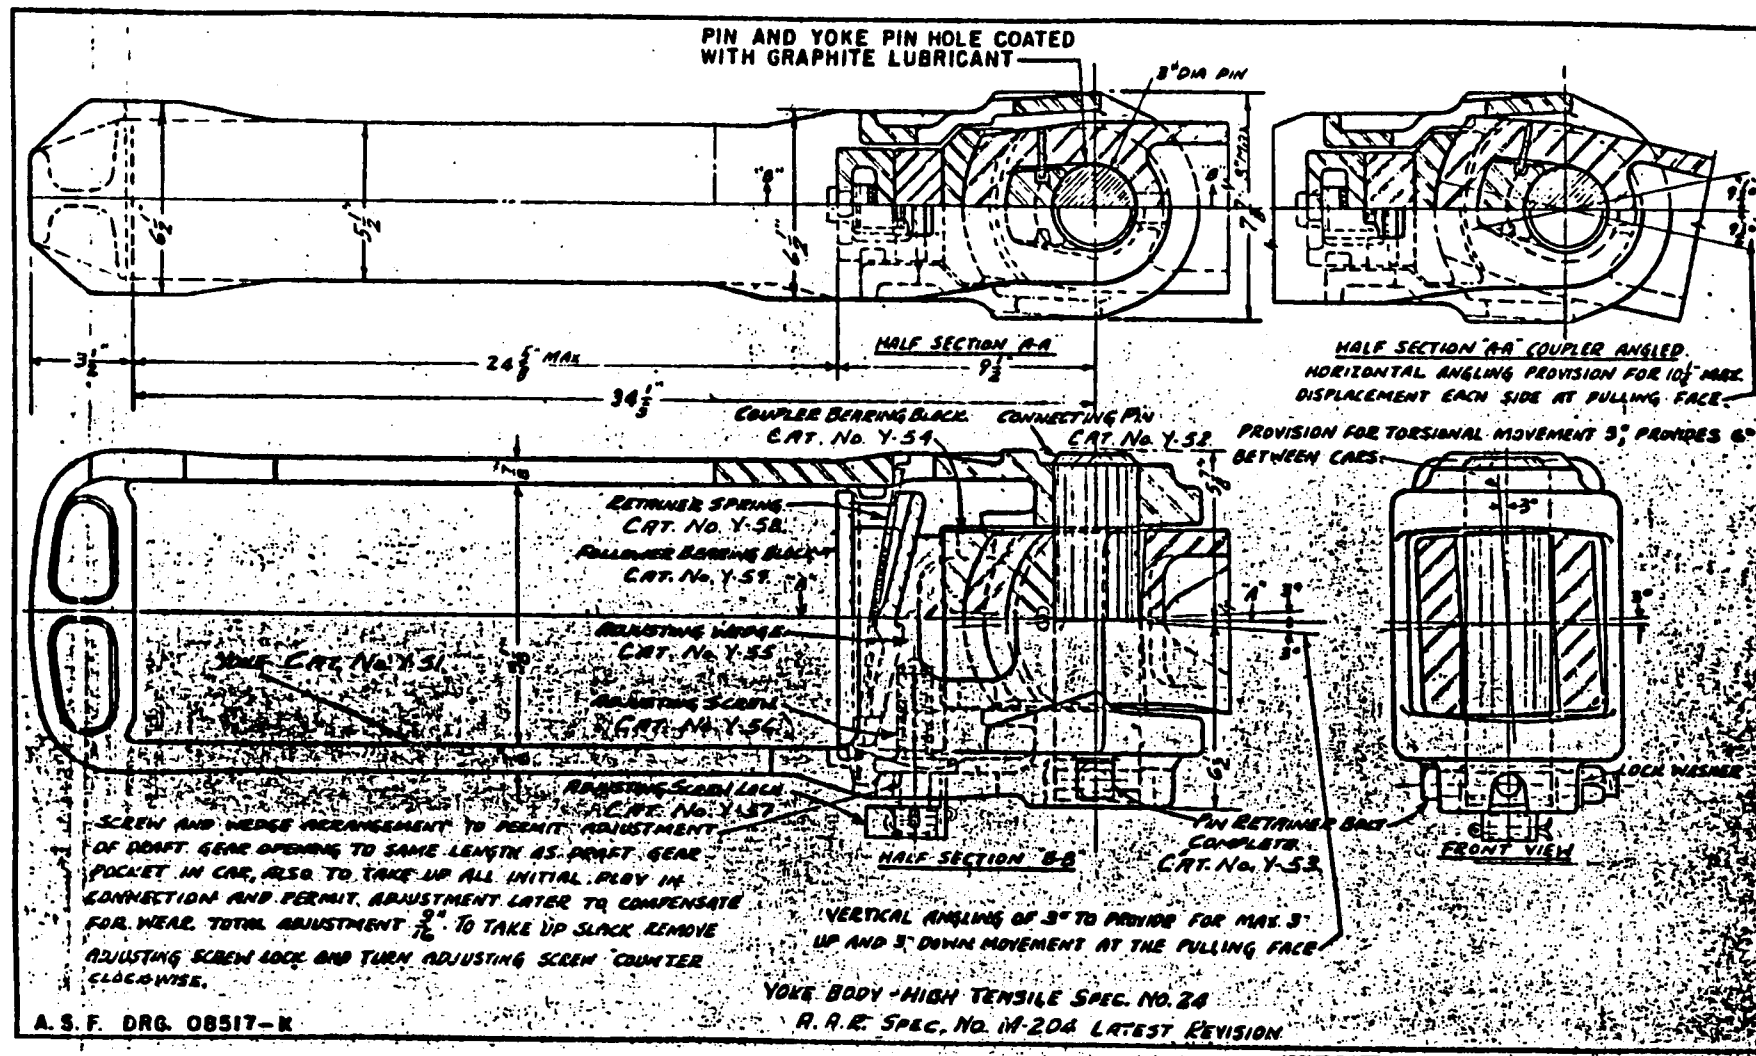 PIN AND YOKE PIN HOLE COATED
WITH GRAPHITE LUBRICANT
3" DIA PIN
"B"
B
6 1/2"
5 1/2"
6 1/2"
7 7/8"
9 1/2°
9 1/2°
HALF SECTION A-A
3 1/2"
24 5/8" MAX
9 1/2"
34 1/2"
HALF SECTION "A-A" COUPLER ANGLED.
HORIZONTAL ANGLING PROVISION FOR 10 1/2" MAX.
DISPLACEMENT EACH SIDE AT PULLING FACE.
COUPLER BEARING BLOCK
CAT. No. Y-54
CONNECTING PIN
CAT. No. Y-52
PROVISION FOR TORSIONAL MOVEMENT 3°, PROVIDES 6°
BETWEEN CARS.
7/8
5 7/8"
RETAINER SPRING
CAT. No. Y-58
FOLLOWER BEARING BLOCK
CAT. No. Y-59
"A"
"A"
3°
3°
3°
3°
ADJUSTING WEDGE
CAT. No. Y-55
YOKE CAT. No. Y-51
ADJUSTING SCREW
CAT. No. Y-56
6 1/2
ADJUSTING SCREW LOCK
CAT. No. Y-57
LOCK WASHER
PIN RETAINER BOLT
COMPLETE
CAT. No. Y-53
HALF SECTION "B-B"
FRONT VIEW
SCREW AND WEDGE ARRANGEMENT TO PERMIT ADJUSTMENT
OF DRAFT GEAR OPENING TO SAME LENGTH AS DRAFT GEAR
POCKET IN CAR, ALSO TO TAKE UP ALL INITIAL PLAY IN
CONNECTION AND PERMIT ADJUSTMENT LATER TO COMPENSATE
FOR WEAR. TOTAL ADJUSTMENT 9/16". TO TAKE UP SLACK REMOVE
ADJUSTING SCREW LOCK AND TURN ADJUSTING SCREW COUNTER
CLOCKWISE.
VERTICAL ANGLING OF 3° TO PROVIDE FOR MAX. 3"
UP AND 3" DOWN MOVEMENT AT THE PULLING FACE
YOKE BODY - HIGH TENSILE SPEC. NO. 24
A.A.R. SPEC. NO. M-204 LATEST REVISION
A. S. F. DRG. 08517-K